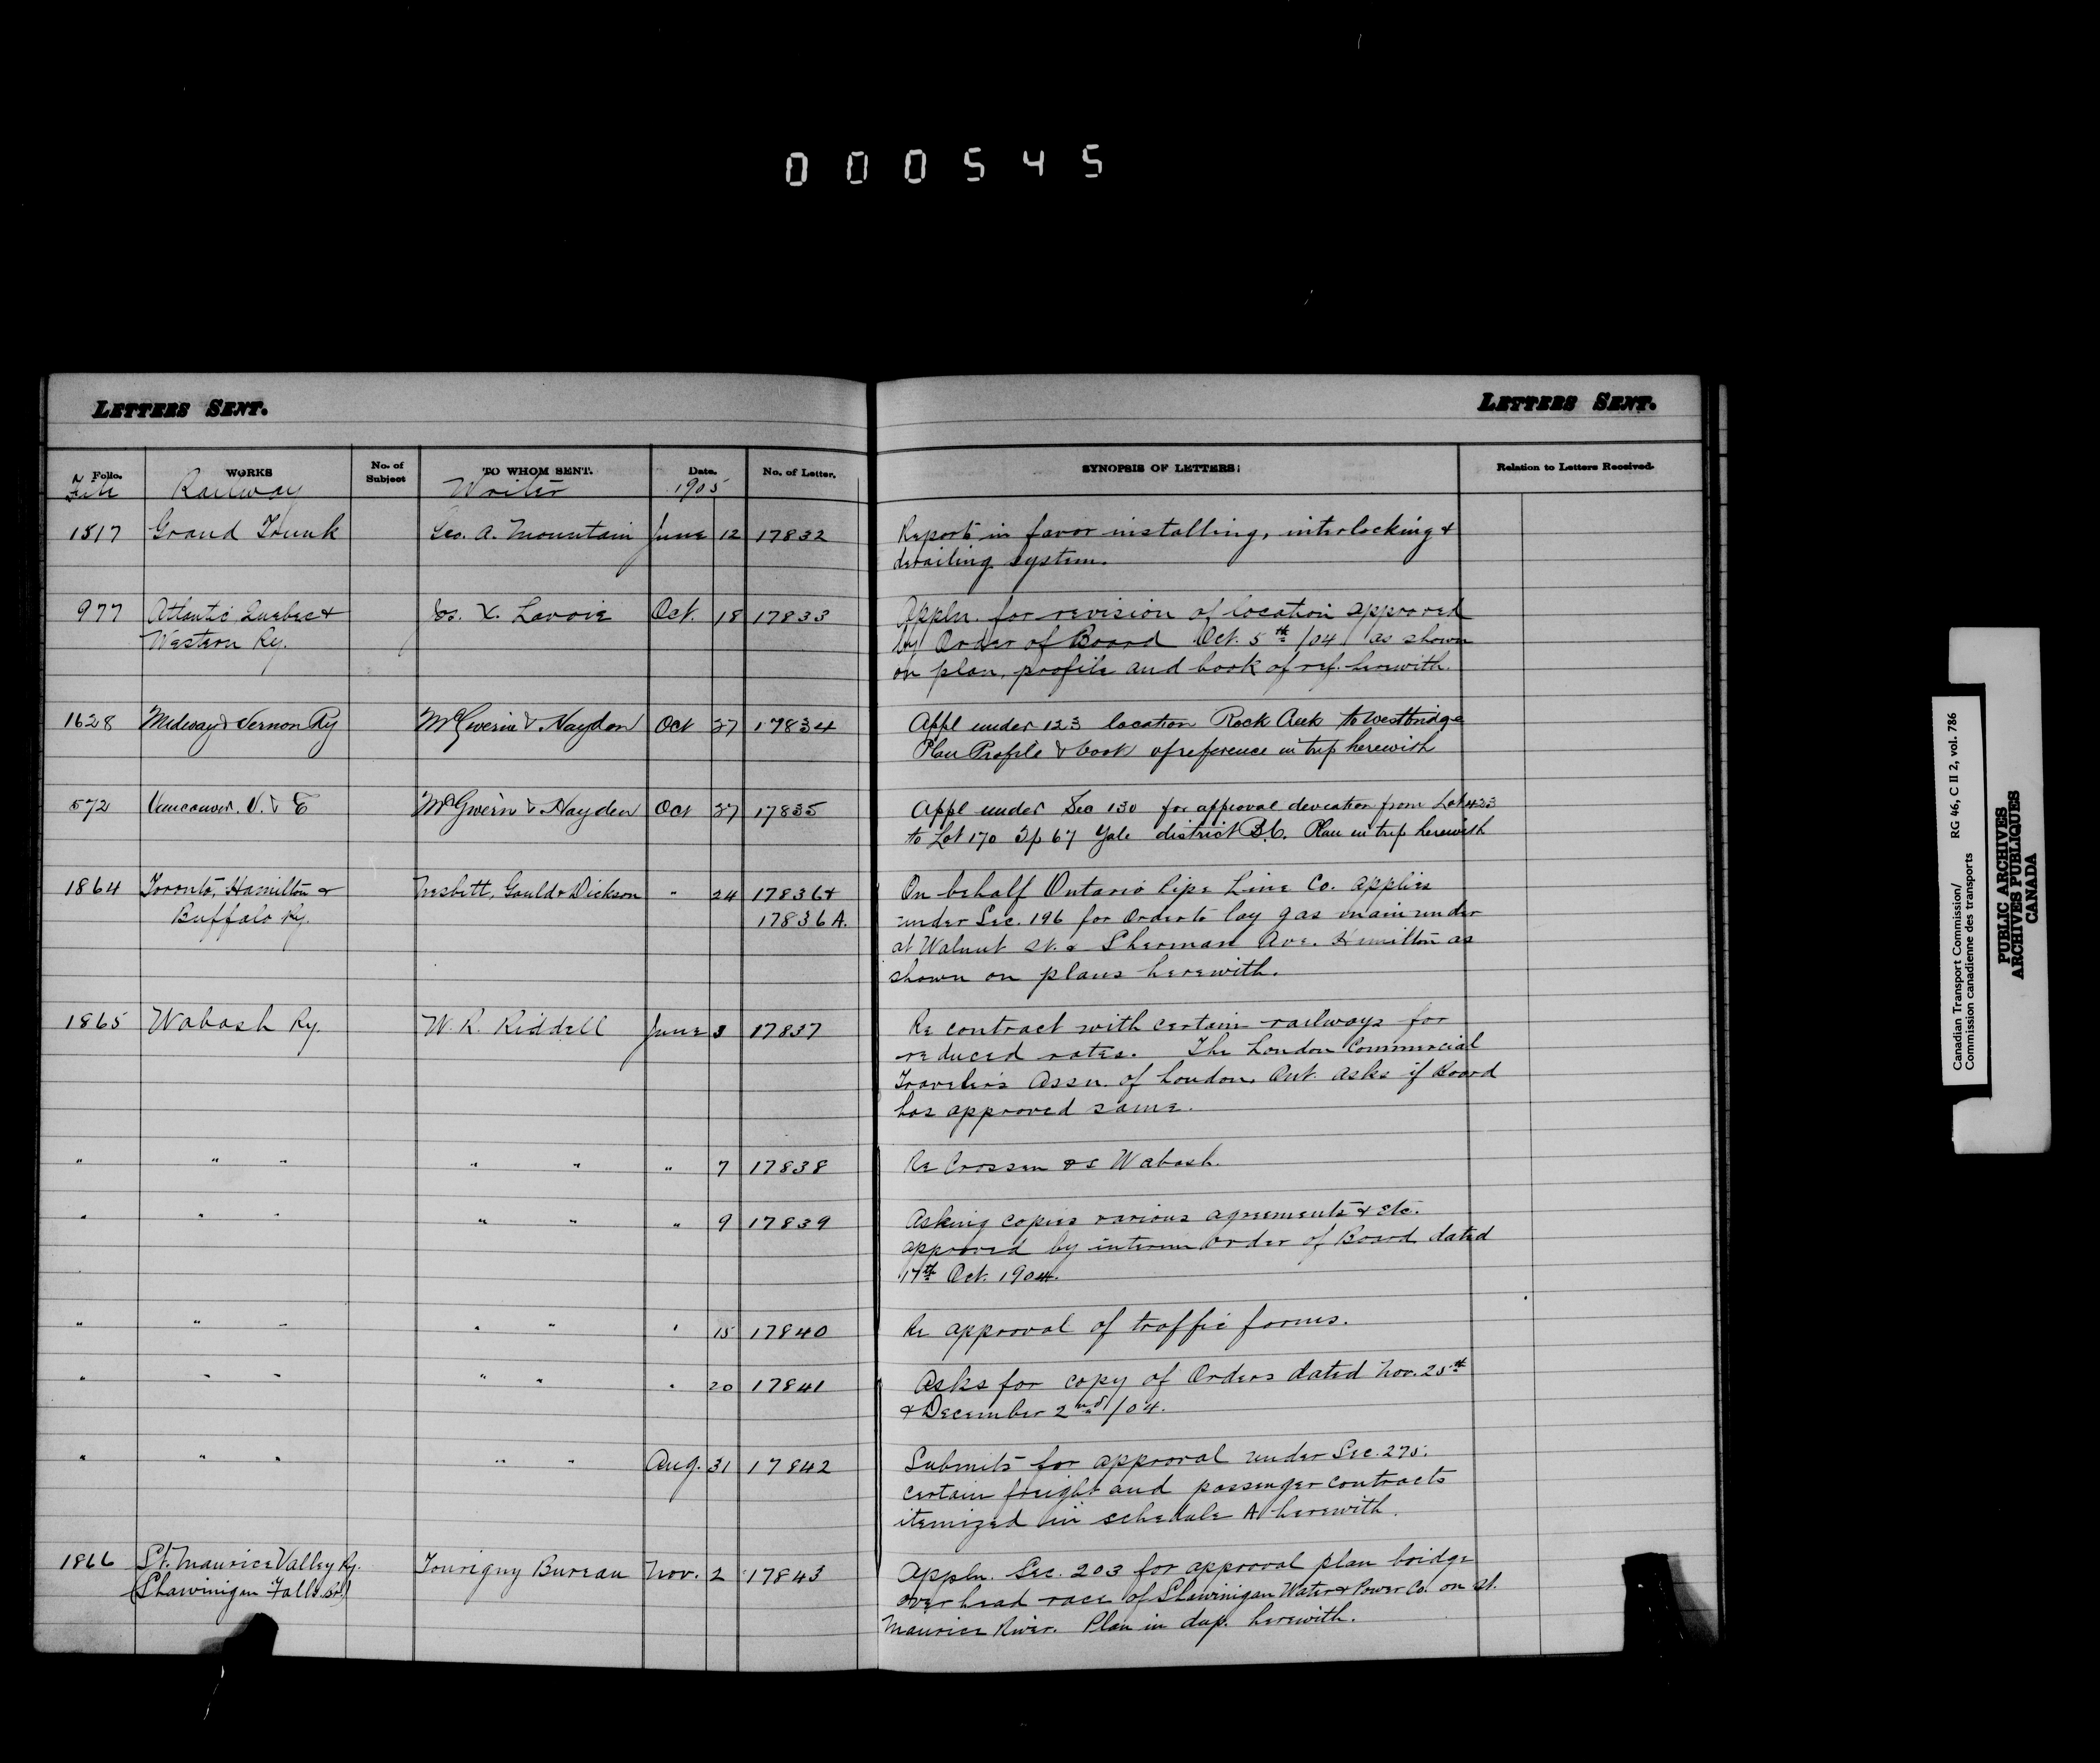 000545
LETTERS SENT.
LETTERS SENT.
Folio. WORKS No. of Subject TO WHOM SENT. Date. No. of Letter. SYNOPSIS OF LETTERS. Relation to Letters Received.
File Railway Writer 1905
1517 Grand Trunk Geo. A. Mountain June 12 17832 Reports in favor installing, interlocking &
derailing system.
977 Atlantic Quebec & Jos. X. Lavoie Oct. 18 17833 Appln. for revision of location approved
Western Ry. by Order of Board Oct. 5th /04 as shown
on plan, profile and book of ref. herewith.
1628 Midway & Vernon Ry McGiverin & Haydon Oct 27 17834 Appl under 123 location Rock Creek to Westbridge
Plan Profile & book of reference in trip herewith
572 Vancouver. V. & E McGiverin & Hayden Oct 27 17835 Appl under Sec 130 for approval deviation from Lot 423
to Lot 170 Tp 67 Yale district B.C. Plan in trip herewith
1864 Toronto, Hamilton & Nesbitt, Gauld & Dickson " 24 17836 & On behalf Ontario Pipe Line Co. applies
Buffalo Ry. 17836A. under Sec. 196 for Order to lay gas main under
at Walnut St. & Sherman Ave. Hamilton as
shown on plans herewith.
1865 Wabash Ry. W. R. Riddell June 3 17837 Re contract with certain railways for
reduced rates. The London Commercial
Traveler's Assn. of London, Ont. asks if Board
has approved same.
" " " " " " 7 17838 Re Crossen vs Wabash.
" " " " " " 9 17839 Asking copies various agreements & etc.
approved by interim Order of Board dated
17th Oct. 1904.
" " " " " " 15 17840 Re approval of traffic forms.
" " " " " " 20 17841 Asks for copy of Orders dated Nov. 25th
& December 2nd/04.
" " " " " Aug. 31 17842 Submits for approval under Sec. 275.
certain freight and passenger contracts
itemized in schedule A herewith.
1866 St. Maurice Valley Ry. Tourigny Bureau Nov. 2 17843 Appln. Sec. 203 for approval plan bridge
(Shawinigan Falls Br.) over head race of Shawinigan Water & Power Co. on St.
Maurice River. Plan in dup. herewith.
Canadian Transport Commission/ RG 46, C II 2, vol. 786
Commission canadienne des transports
PUBLIC ARCHIVES
ARCHIVES PUBLIQUES
CANADA